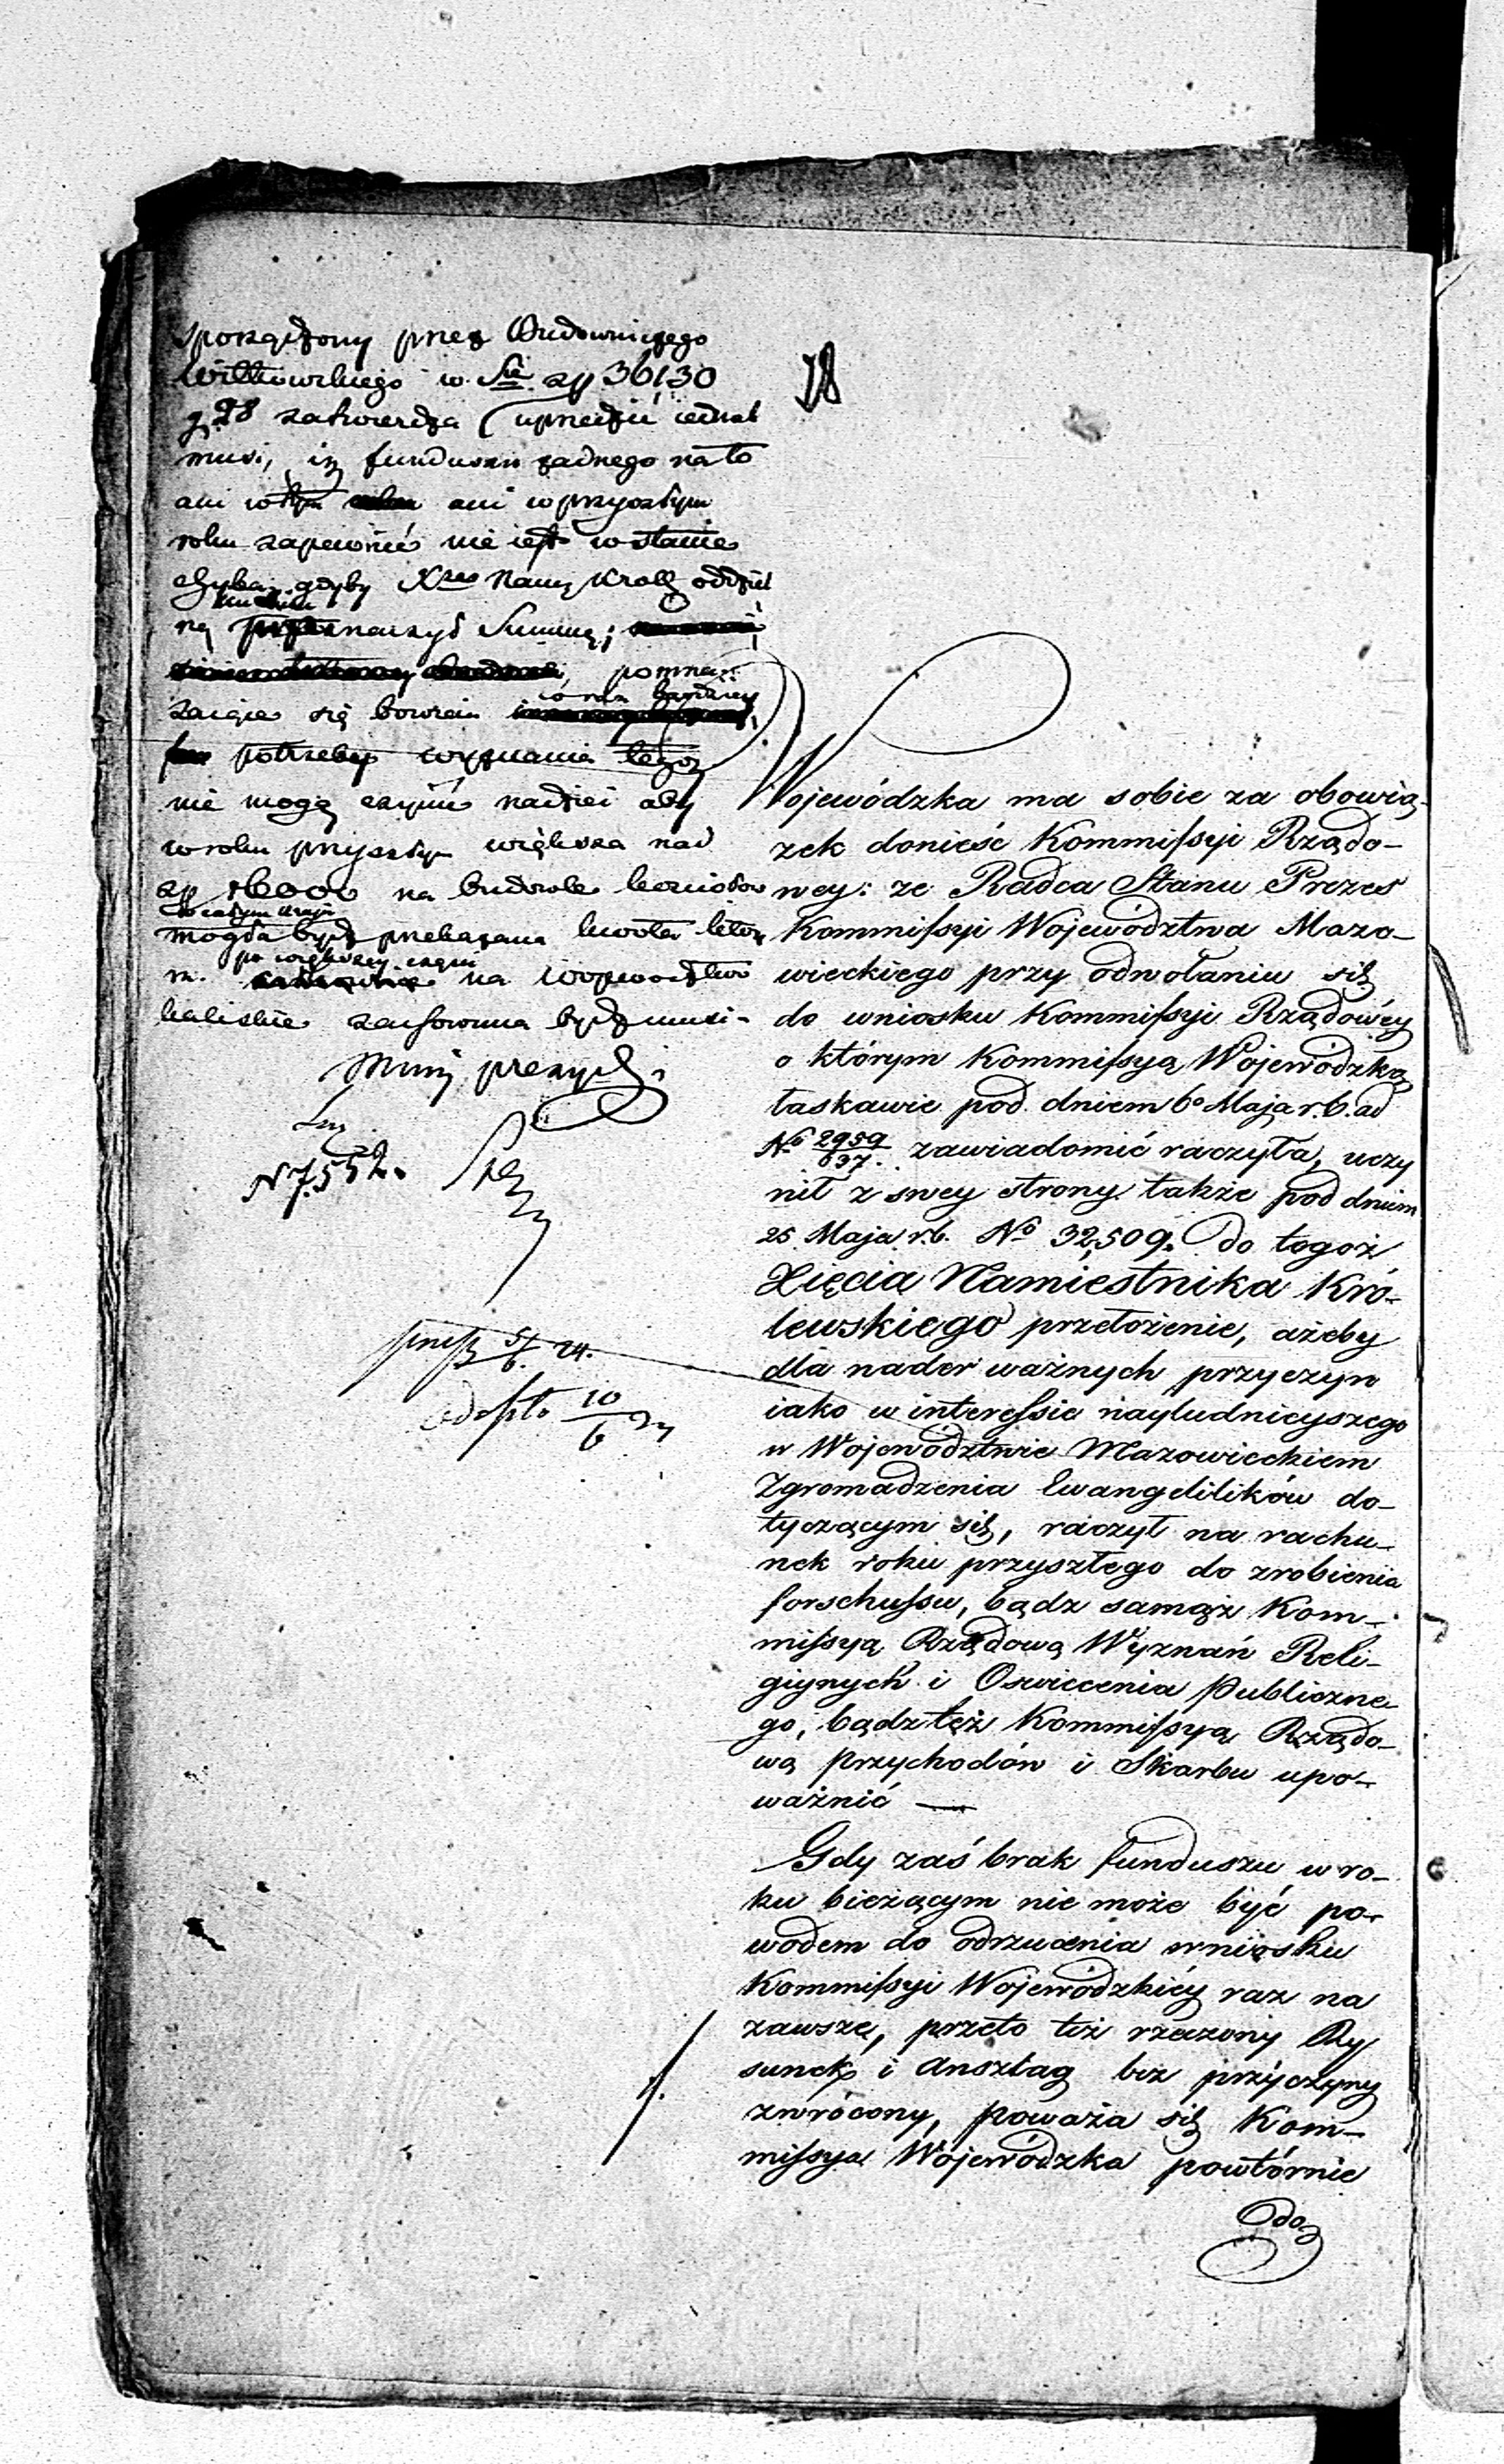 sporządzony przez Budowniczego
Wilkowskiego w Sie zp 36130
g. 28 zatwierdza (uprzedzić iednak
musi, iż funduszu żadnego na to
ani w tym ani w przyszłym
roku zapewnić nie iest w stanie
chyba, gdyby Xże Namj Kroll oddziel
ną naczył Summę;
pomna:
żaiące się bowiem co raz bardziey
potrzeby wyznania tego
nie mogą czynić nadziei aby
w roku przyszłym większa nad
zp 16000 na budowle kościołów
w całym kraju
mogła bydź przekazana kwota
po większey części
na Wojewodztwo
kaliskie zachowana bydź musi.
Minj prezyd:
N 7552.
78
Wojewódzka ma sobie za obowią-
zek donieść Kommissyi Rządo-
wey: że Radca Stanu Prezes
Kommissyi Województwa Mazo-
wieckiego przy odwołaniu się
do wniosku Kommissyi Rządowéy
o którym Kommissyą Wojewódzką
łaskawie pod dniem 6º Maja r. b. ad
Nº 2959/637. zawiadomić raczyła, uczy
nił z swey strony także pod dniem
25 Maja r. b. Nº 32,509. do togoż
Xięcia Namiestnika Kró-
lewskiego przełożenie, ażeby
dla nader ważnych przyczyn
iako w interessie nayludnieyszego
w Województwie Mazowieckiem
Zgromadzenia Ewangelików do-
tyczącym się, raczył na rachu-
nek roku przyszłego do zrobienia
forschussu, bądz samąż Kom-
missyą Rządową Wyznań Reli-
giynych i Oswiecenia Publiczne-
go, bądz też Kommissyą Rządo-
wą Przychodów i Skarbu upo-
ważnić —
Gdy zaś brak funduszu w ro-
ku bieżącym nie może być po-
wodem do odrzucenia wniosku
Kommissyi Wojewódzkiéy raz na
zawsze, przeto też rzeczony Ry
sunek i Anszlag bez przyczyny
zwrócony, poważa się Kom-
missya Wojewódzka powtórnie
do
przesz 5/6. 24.
odeszło 10/6